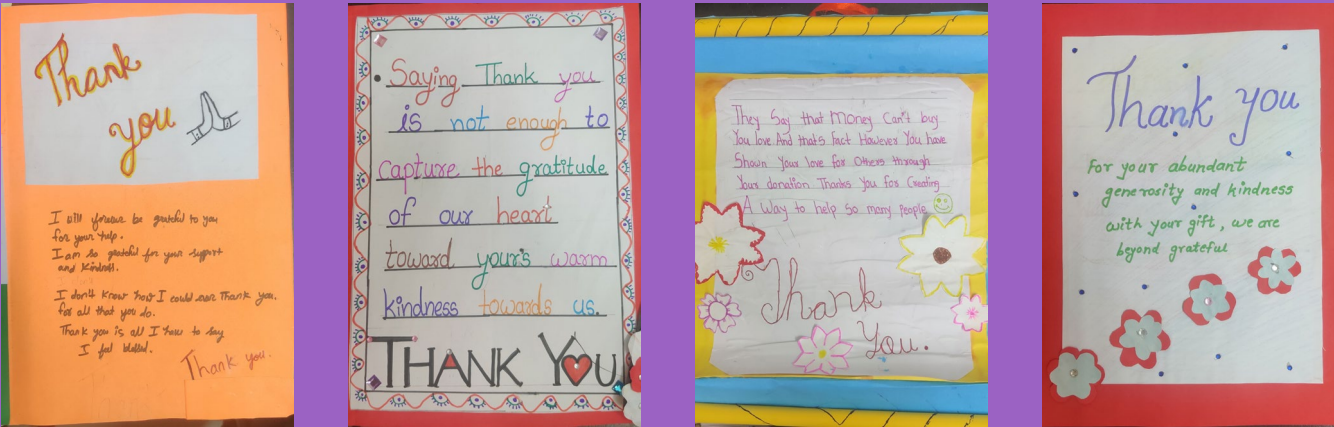 Thank
you
I will forever be grateful to you
for your help.
I am so grateful for your support
and kindness.
I don't know how I could ever Thank you.
for all that you do.
Thank you is all I have to say
I feel blessed.
Thank you.
Saying Thank you
is not enough to
capture the gratitude
of our heart
toward your's warm
kindness towards us.
THANK YOU
They Say that money Can't buy
You love And that's Fact However You have
Shown Your love for Others through
Your donation Thanks You for Creating
A Way to help So many People
Thank
You.
Thank you
For your abundant
generosity and kindness
with your gift, we are
beyond grateful